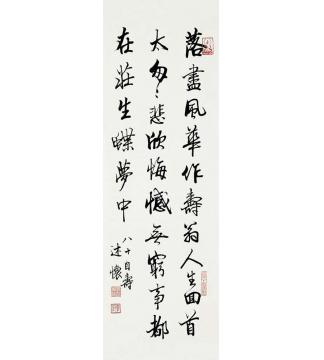 落盡風華作壽翁人生回首
太匆匆悲欣悔憾無窮事都
在莊生蝶夢中
八十自壽
述懷